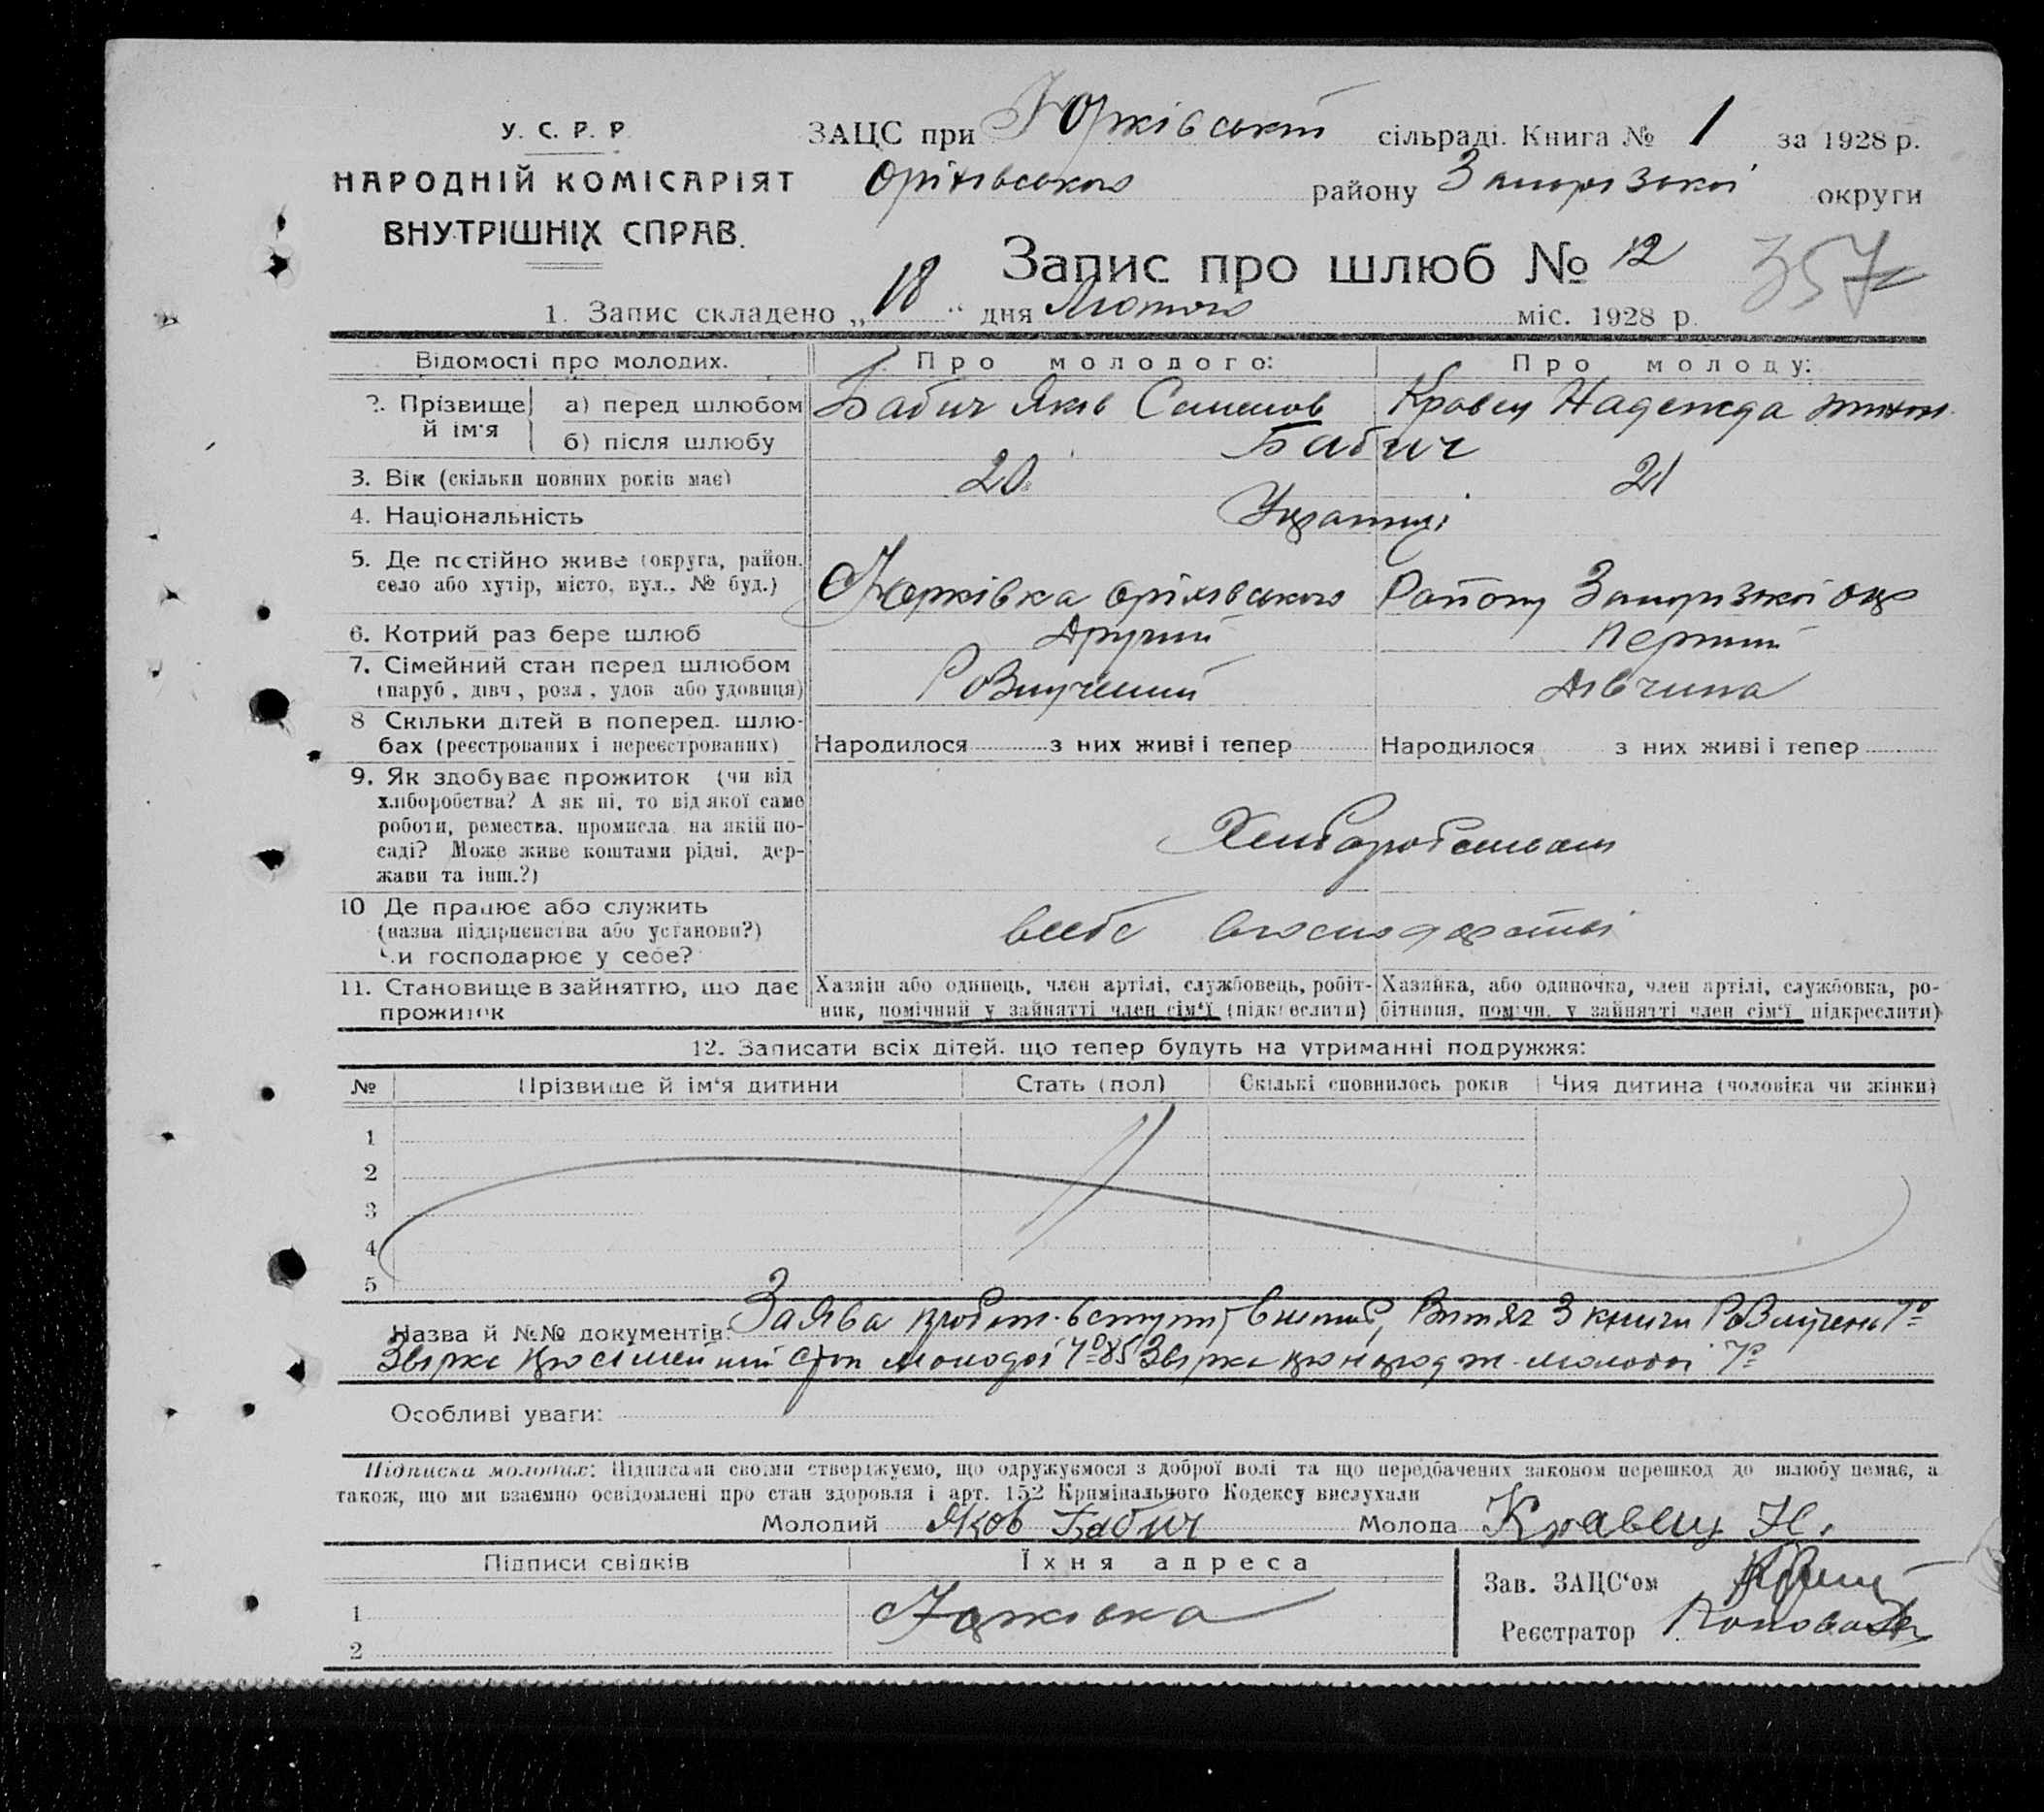 У. С. Р. Р.
НАРОДНІЙ КОМІСАРІЯТ
ВНУТРІШНІХ СПРАВ.
ЗАЦС при Юрківській сільраді. Книга № 1 за 1928 р.
Оріхівського району Запорізької округи
Запис про шлюб № 12
357
1. Запис складено „18“ дня Лютого міс. 1928 р.
Відомості про молодих. Про молодого: Про молоду:
2. Прізвище й ім'я а) перед шлюбом Бабич Яків Семенов Кравец Надежда
б) після шлюбу Бабич
3. Вік (скільки повних років має) 20 21
4. Національність Украинці
5. Де постійно живе (округа, район, Юрківка Оріхівського Району Запорізької окр
село або хутір, місто, вул., № буд.)
6. Котрий раз бере шлюб Другий Первий
7. Сімейний стан перед шлюбом Розлучений Дівчина
(паруб., дівч., розл., удов. або удовиця)
8 Скільки дітей в поперед. шлю-
бах (реєстрованих і нереєстрованих) Народилося з них живі і тепер Народилося з них живі і тепер
9. Як здобуває прожиток (чи від
хліборобства? А як ні, то від якої саме
роботи, ремества, промисла, на якій по-
саді? Може живе коштами рідні, дер-
жави та інш.?)
10 Де працює або служить
(назва підприємства або установи?)
Чи господарює у себе?
11. Становище в зайняттю, що дає прожиток
Хазяін або одинець, член артілі, службовець, робіт-
ник, помічний у зайнятті член сім'ї (підкреслити)
Хазяйка, або одиночка, член артілі, службовка, ро-
бітниця, помічн. у зайнятті член сім'ї підкреслити)
12. Записати всіх дітей, що тепер будуть на утриманні подружжя:
№ Прізвище й ім'я дитини Стать (пол) Скількі сповнилось років Чия дитина (чоловіка чи жінки)
1
2
3
4
5
Назва й №№ документів: Заява вступ, Витяг З книги Розлучень №
сімейний стан молодої № 85 молодої №
Особливі уваги:
Підписка молодих: Підписами своїми стверджуємо, що одружуємося з доброї волі та що передбачених законом перешкод до шлюбу немає, а
також, що ми взаємно освідомлені про стан здоровля і арт. 152 Кримінального Кодексу вислухали
Молодий Яков Бабич Молода Кравец Н.
Підписи свідків Їхня адреса
Зав. ЗАЦС'ом
1 Юрківка
Реєстратор
2